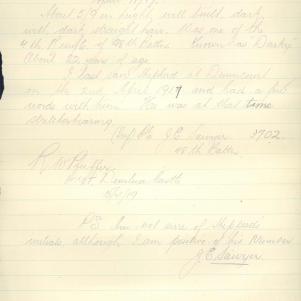 About 5/9 in height, well built, dark
with dark straight hair. Was one of the
4th Reinfts of 48th Battn. Known as "Darky"
About 22 years of age
I last saw Shepherd at Dernancourt
on the 2nd April 1917 and had a few
words with him. He was at that time
stretcherbearing.
J.E. Sawyer 3702.
48th Battn.
Castle
P.S. I'm not sure of Sheppards
initials, although I am positive of his Number
J.E. Sawyer.